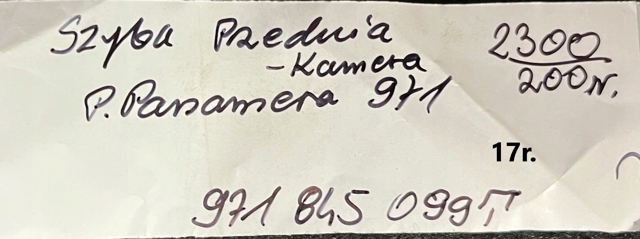 Szyba Przednia
- Kamera
P. Panamera 971
2300
200 N.
17r.
971 845 099